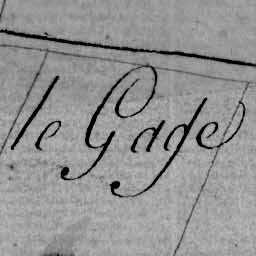 le Gage